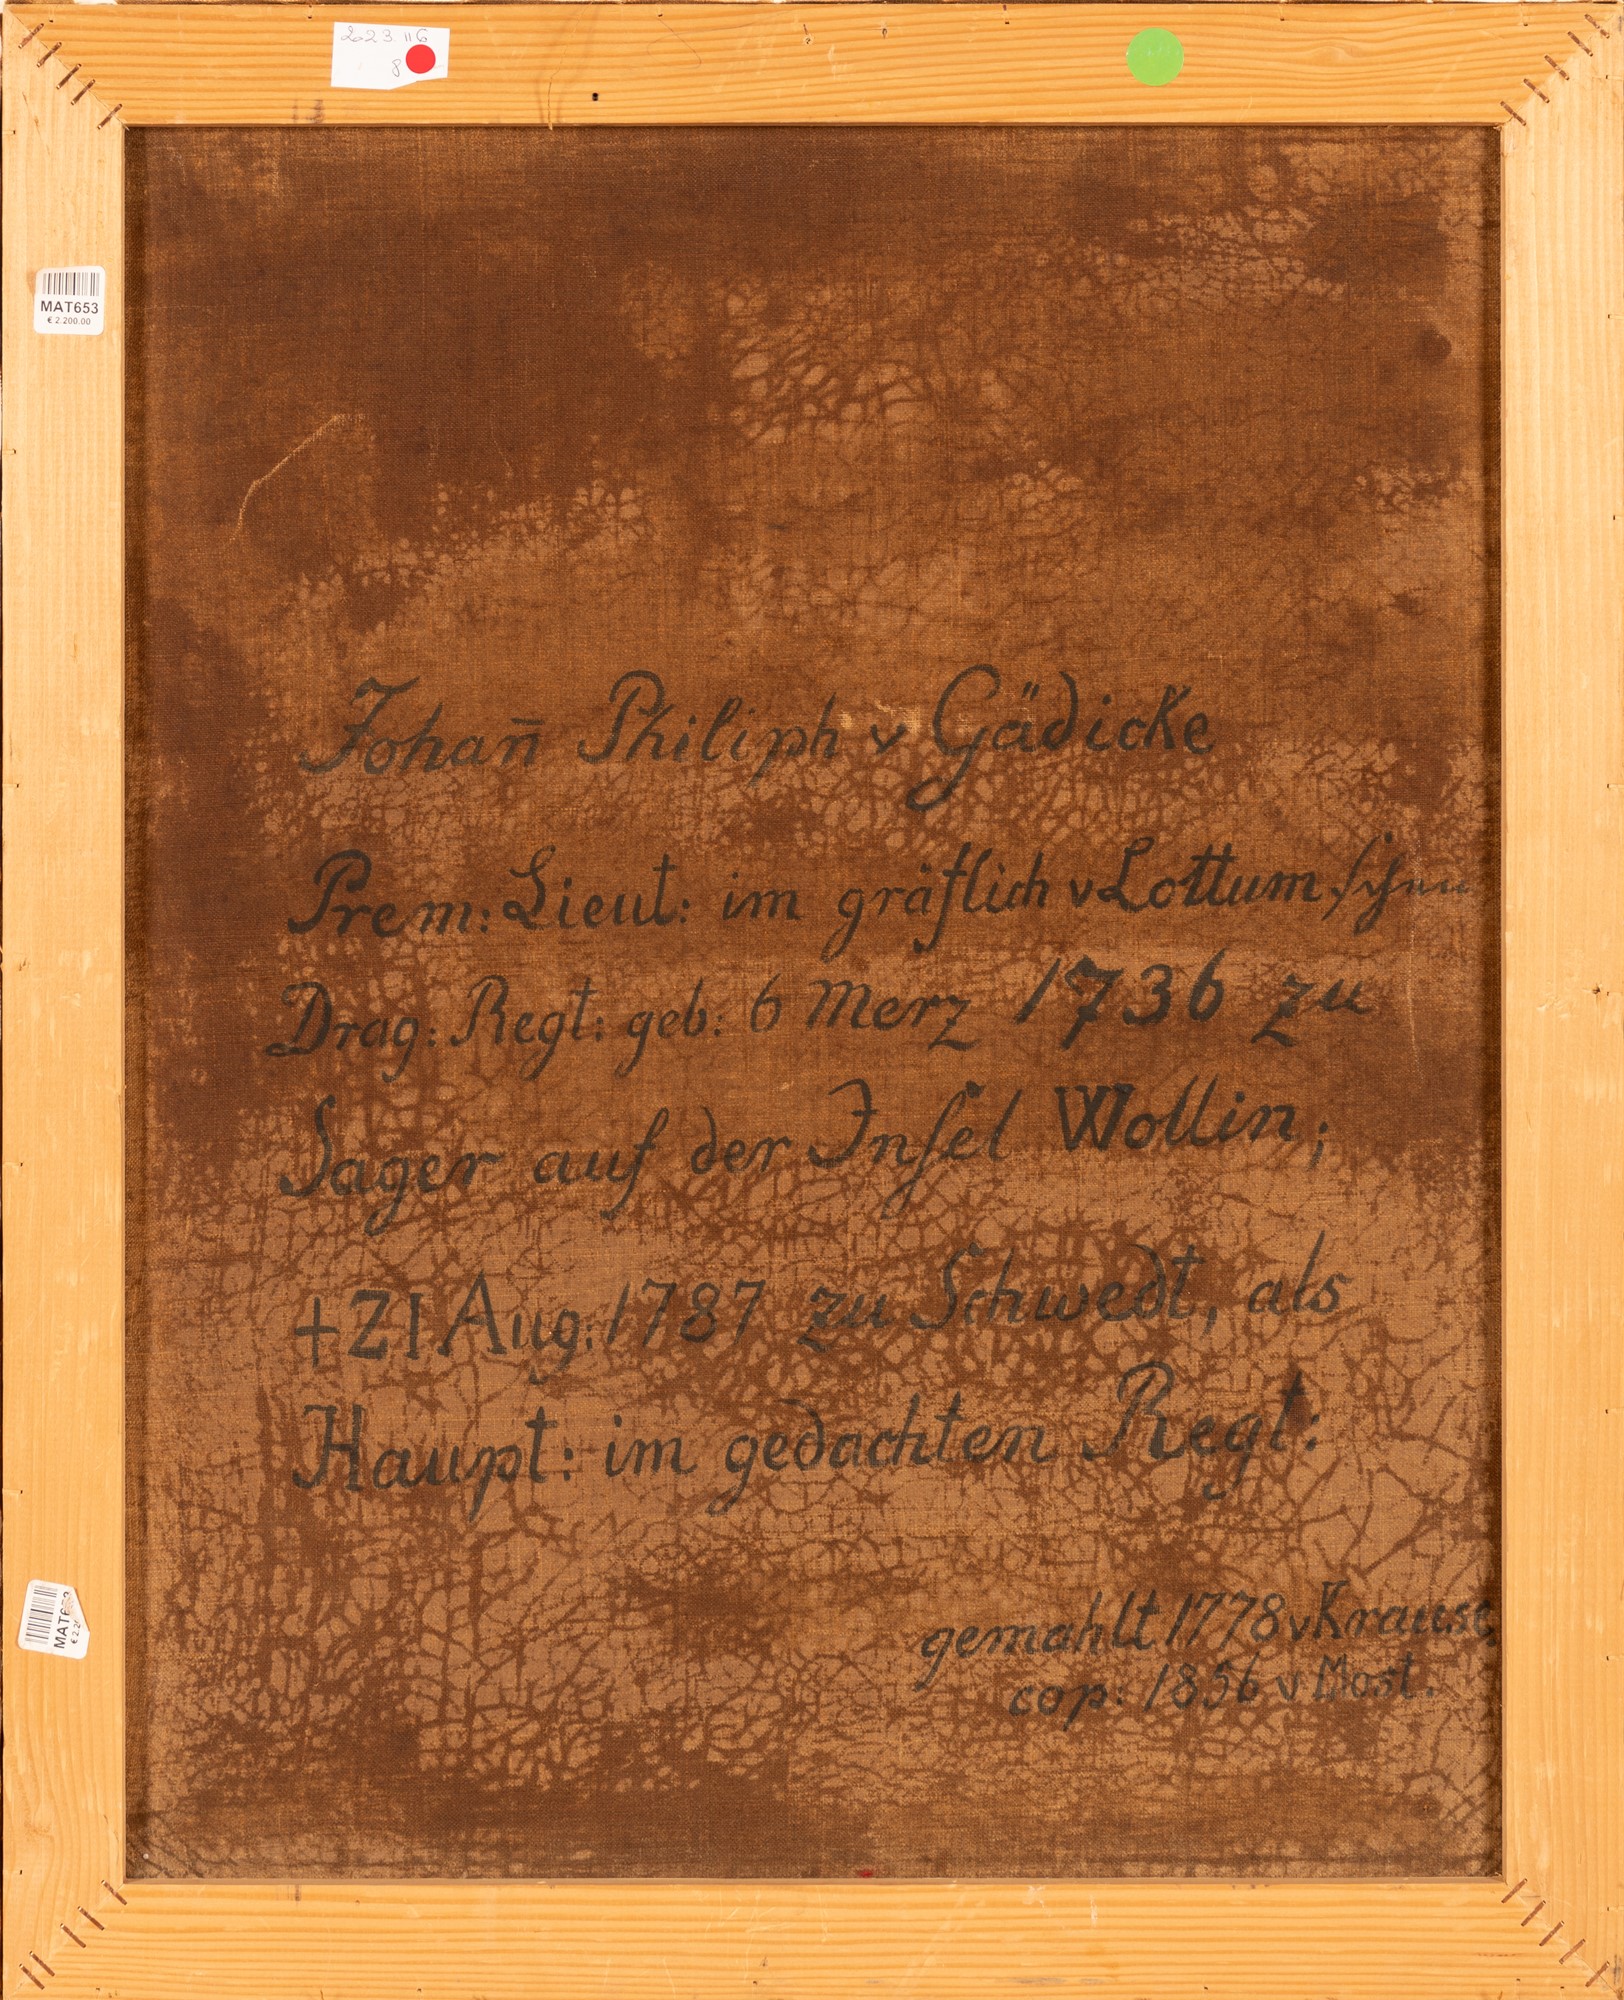 2023.116
8
MAT653
€ 2.200.00
Johan̄ Philiph v Gädicke
Prem: Lieut: im gräflich v Lottum'schen
Drag: Regt: geb: 6 Merz 1736 zu
Sager auf der Insel Wollin;
+ 21 Aug: 1787 zu Schwedt, als
Haupt: im gedachten Regt:
gemahlt 1778 v Krause,
cop: 1856 v Most.
MAT653